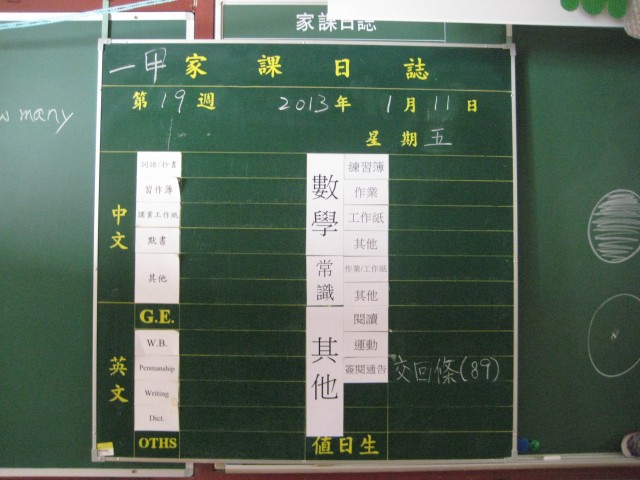 家課日誌
一甲 家課日誌
第19週 2013年1月11日
星期五
w many
中文
詞語/抄書
習作簿
課業工作紙
默書
其他
英文
G.E.
W.B.
Penmanship
Writing
Dict.
OTHS
數學
練習簿
作業
工作紙
其他
常識
作業/工作紙
其他
其他
閱讀
運動
簽閱通告 交回條(89)
值日生